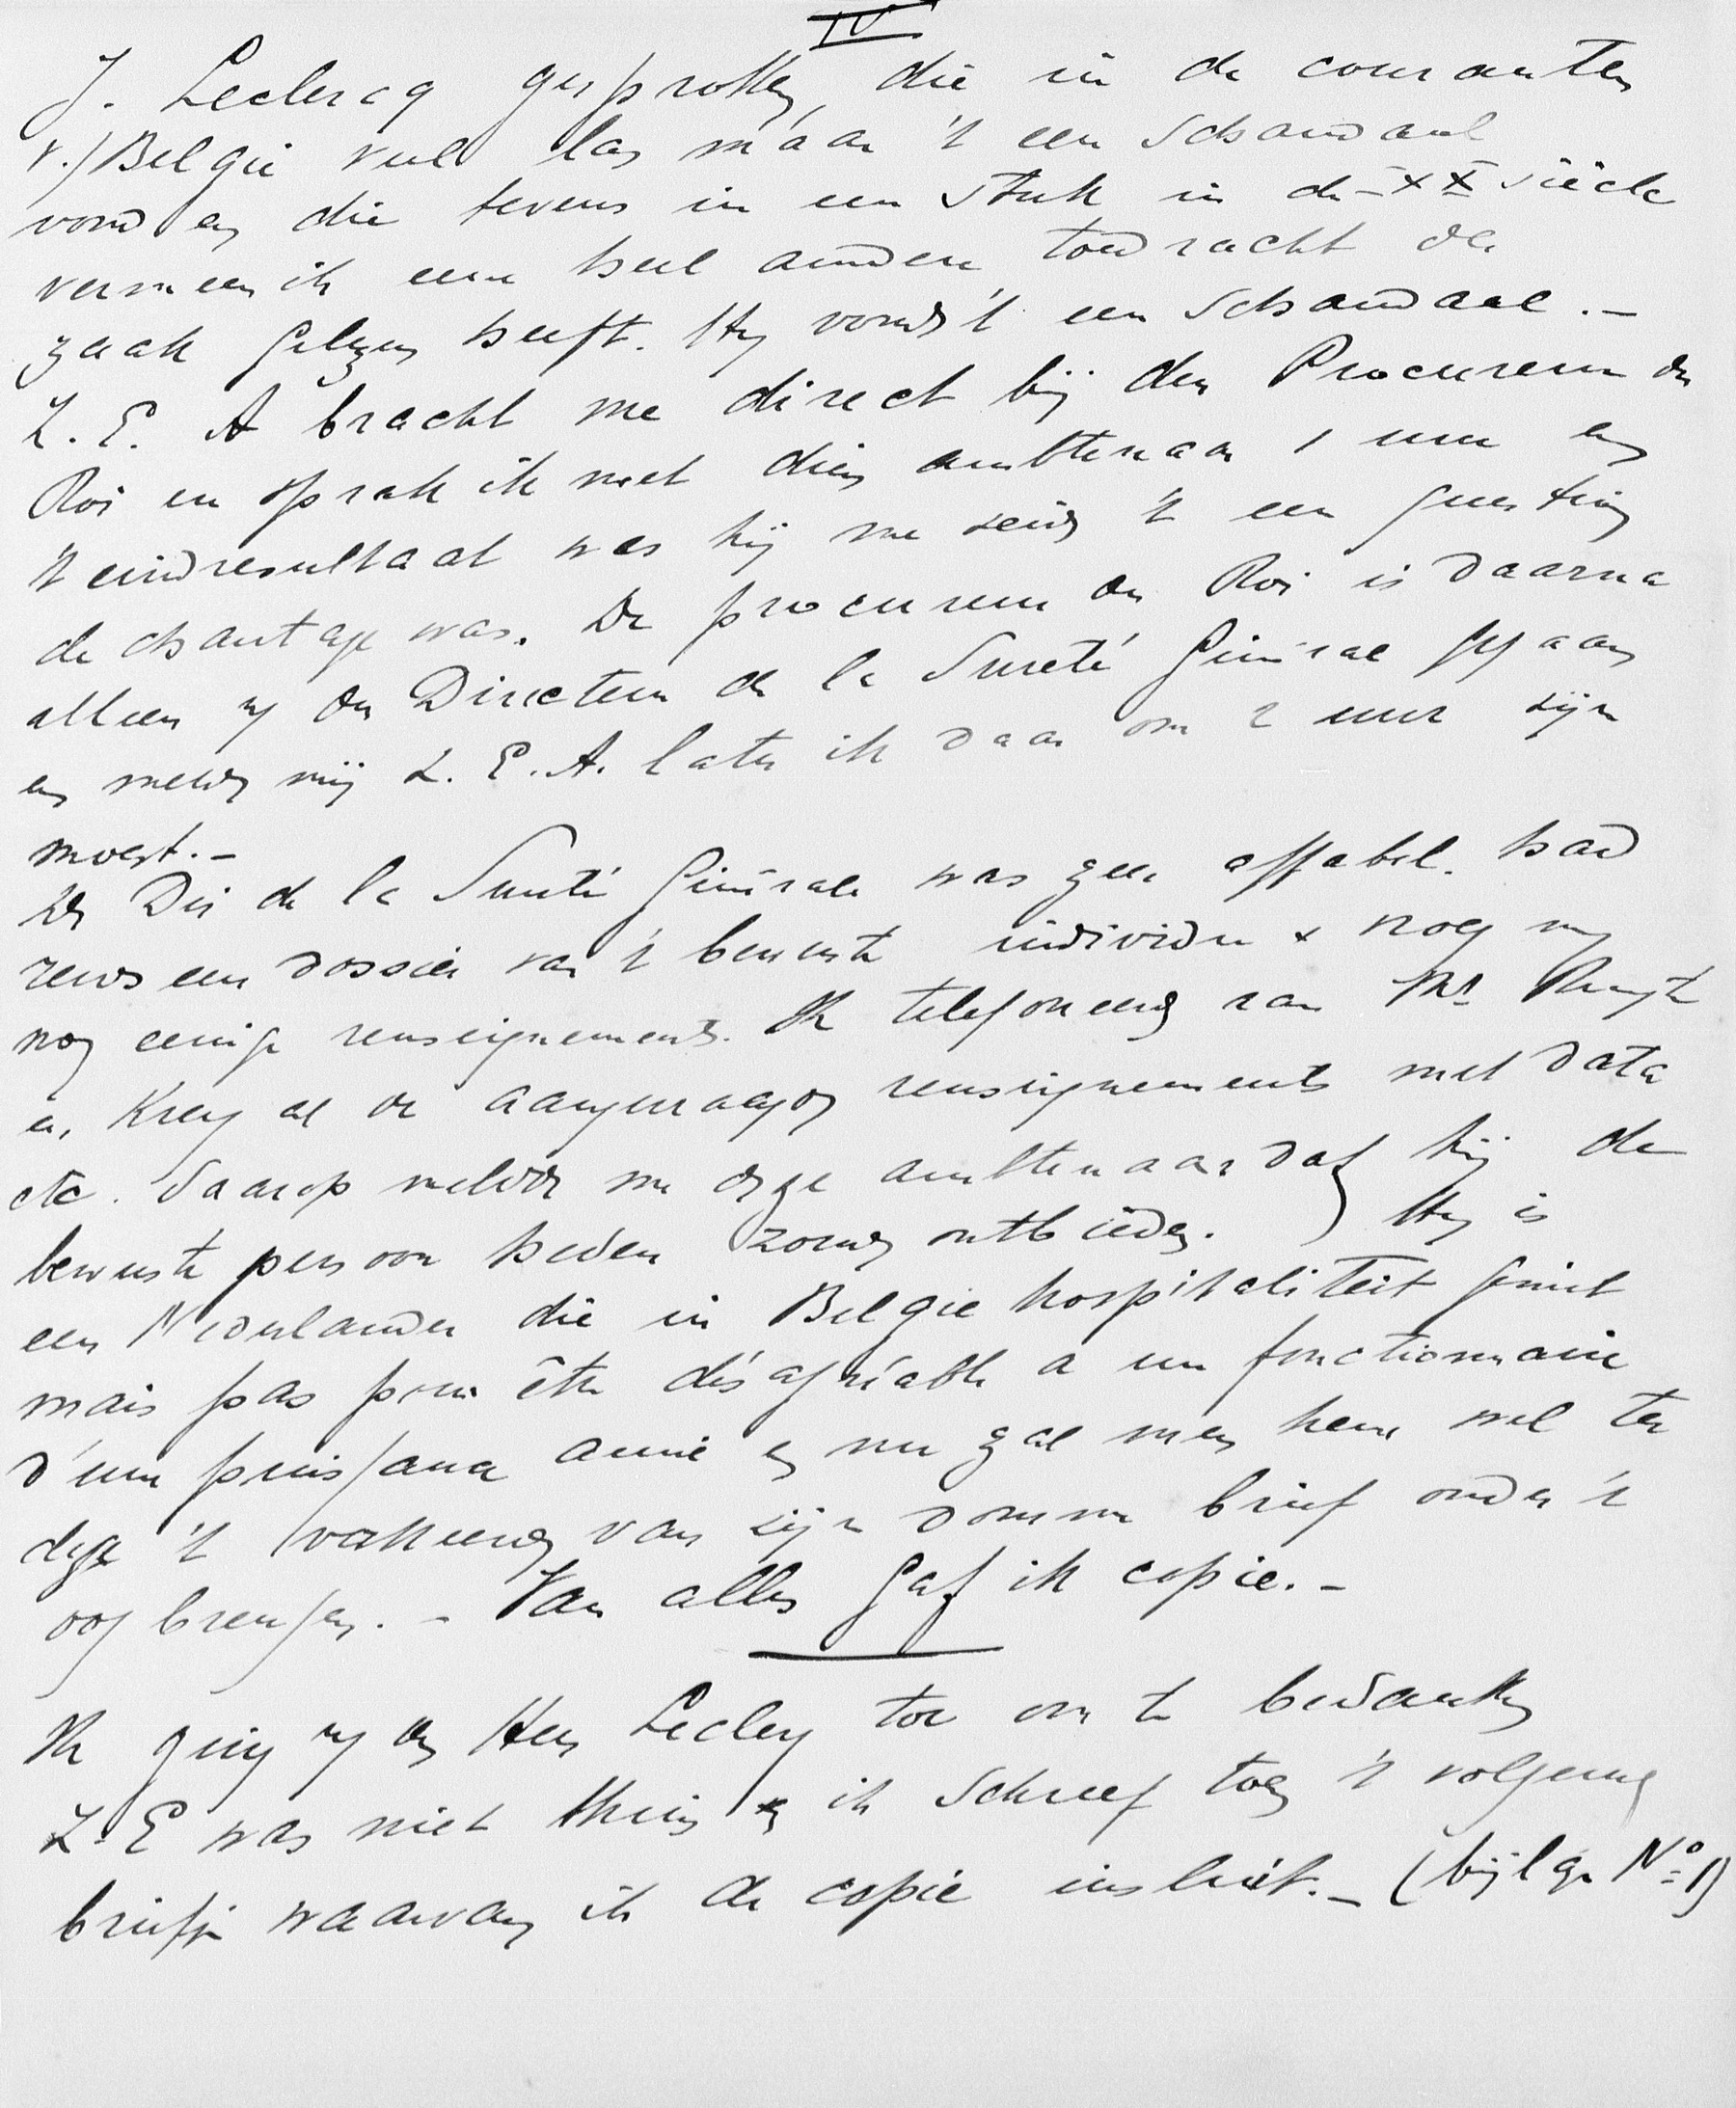 IV
J. Leclercq gesproken, die in de couranten
v./België veel las maar 't een schandaal
vond en die tevens in een stuk in de XX siècle
vermeen ik een heel andere toedracht der
zaak gelezen heeft. Hij vond 't een schandaal. -
Z. E. A bracht me direct bij den Procureur du
Roi en sprak ik met dien ambtenaar 1 uur en
't eindresultaat was hij me zeide 't een question
de chantage was. De procureur du Roi is daarna
alleen den Directeur de la Sureté Général gegaan
en meldde mij Z. E. A. later ik daar om 2 uur zijn
moest. -
De Dir de la Sureté Générale was zeer affabel. had
reeds een dossier van 't bewuste individu & nog
nog eenige renseignements. Ik telefoneerde van Mr
en kreeg al de aangevraagde renseignements met data
etc. daarop meldde me deze ambtenaar dat hij de
bewuste persoon heden zoude ontbieden. Hij is
een Nederlander die in België hospitaliteit geniet
mais pas pour être désagréable a un fonctionnaire
d'une puissance amie en nu zal men hem wel ter
dege 't verkeerde van zijn domme brief onder 't
oog brengen. - Van alles gaf ik copie. -
Ik ging den Heer Leclercq toe om te bedanken
Z. E was niet thuis en ik schreef toen 't volgende
briefje waarvan ik de copie insluit. - (bijlage No 1)